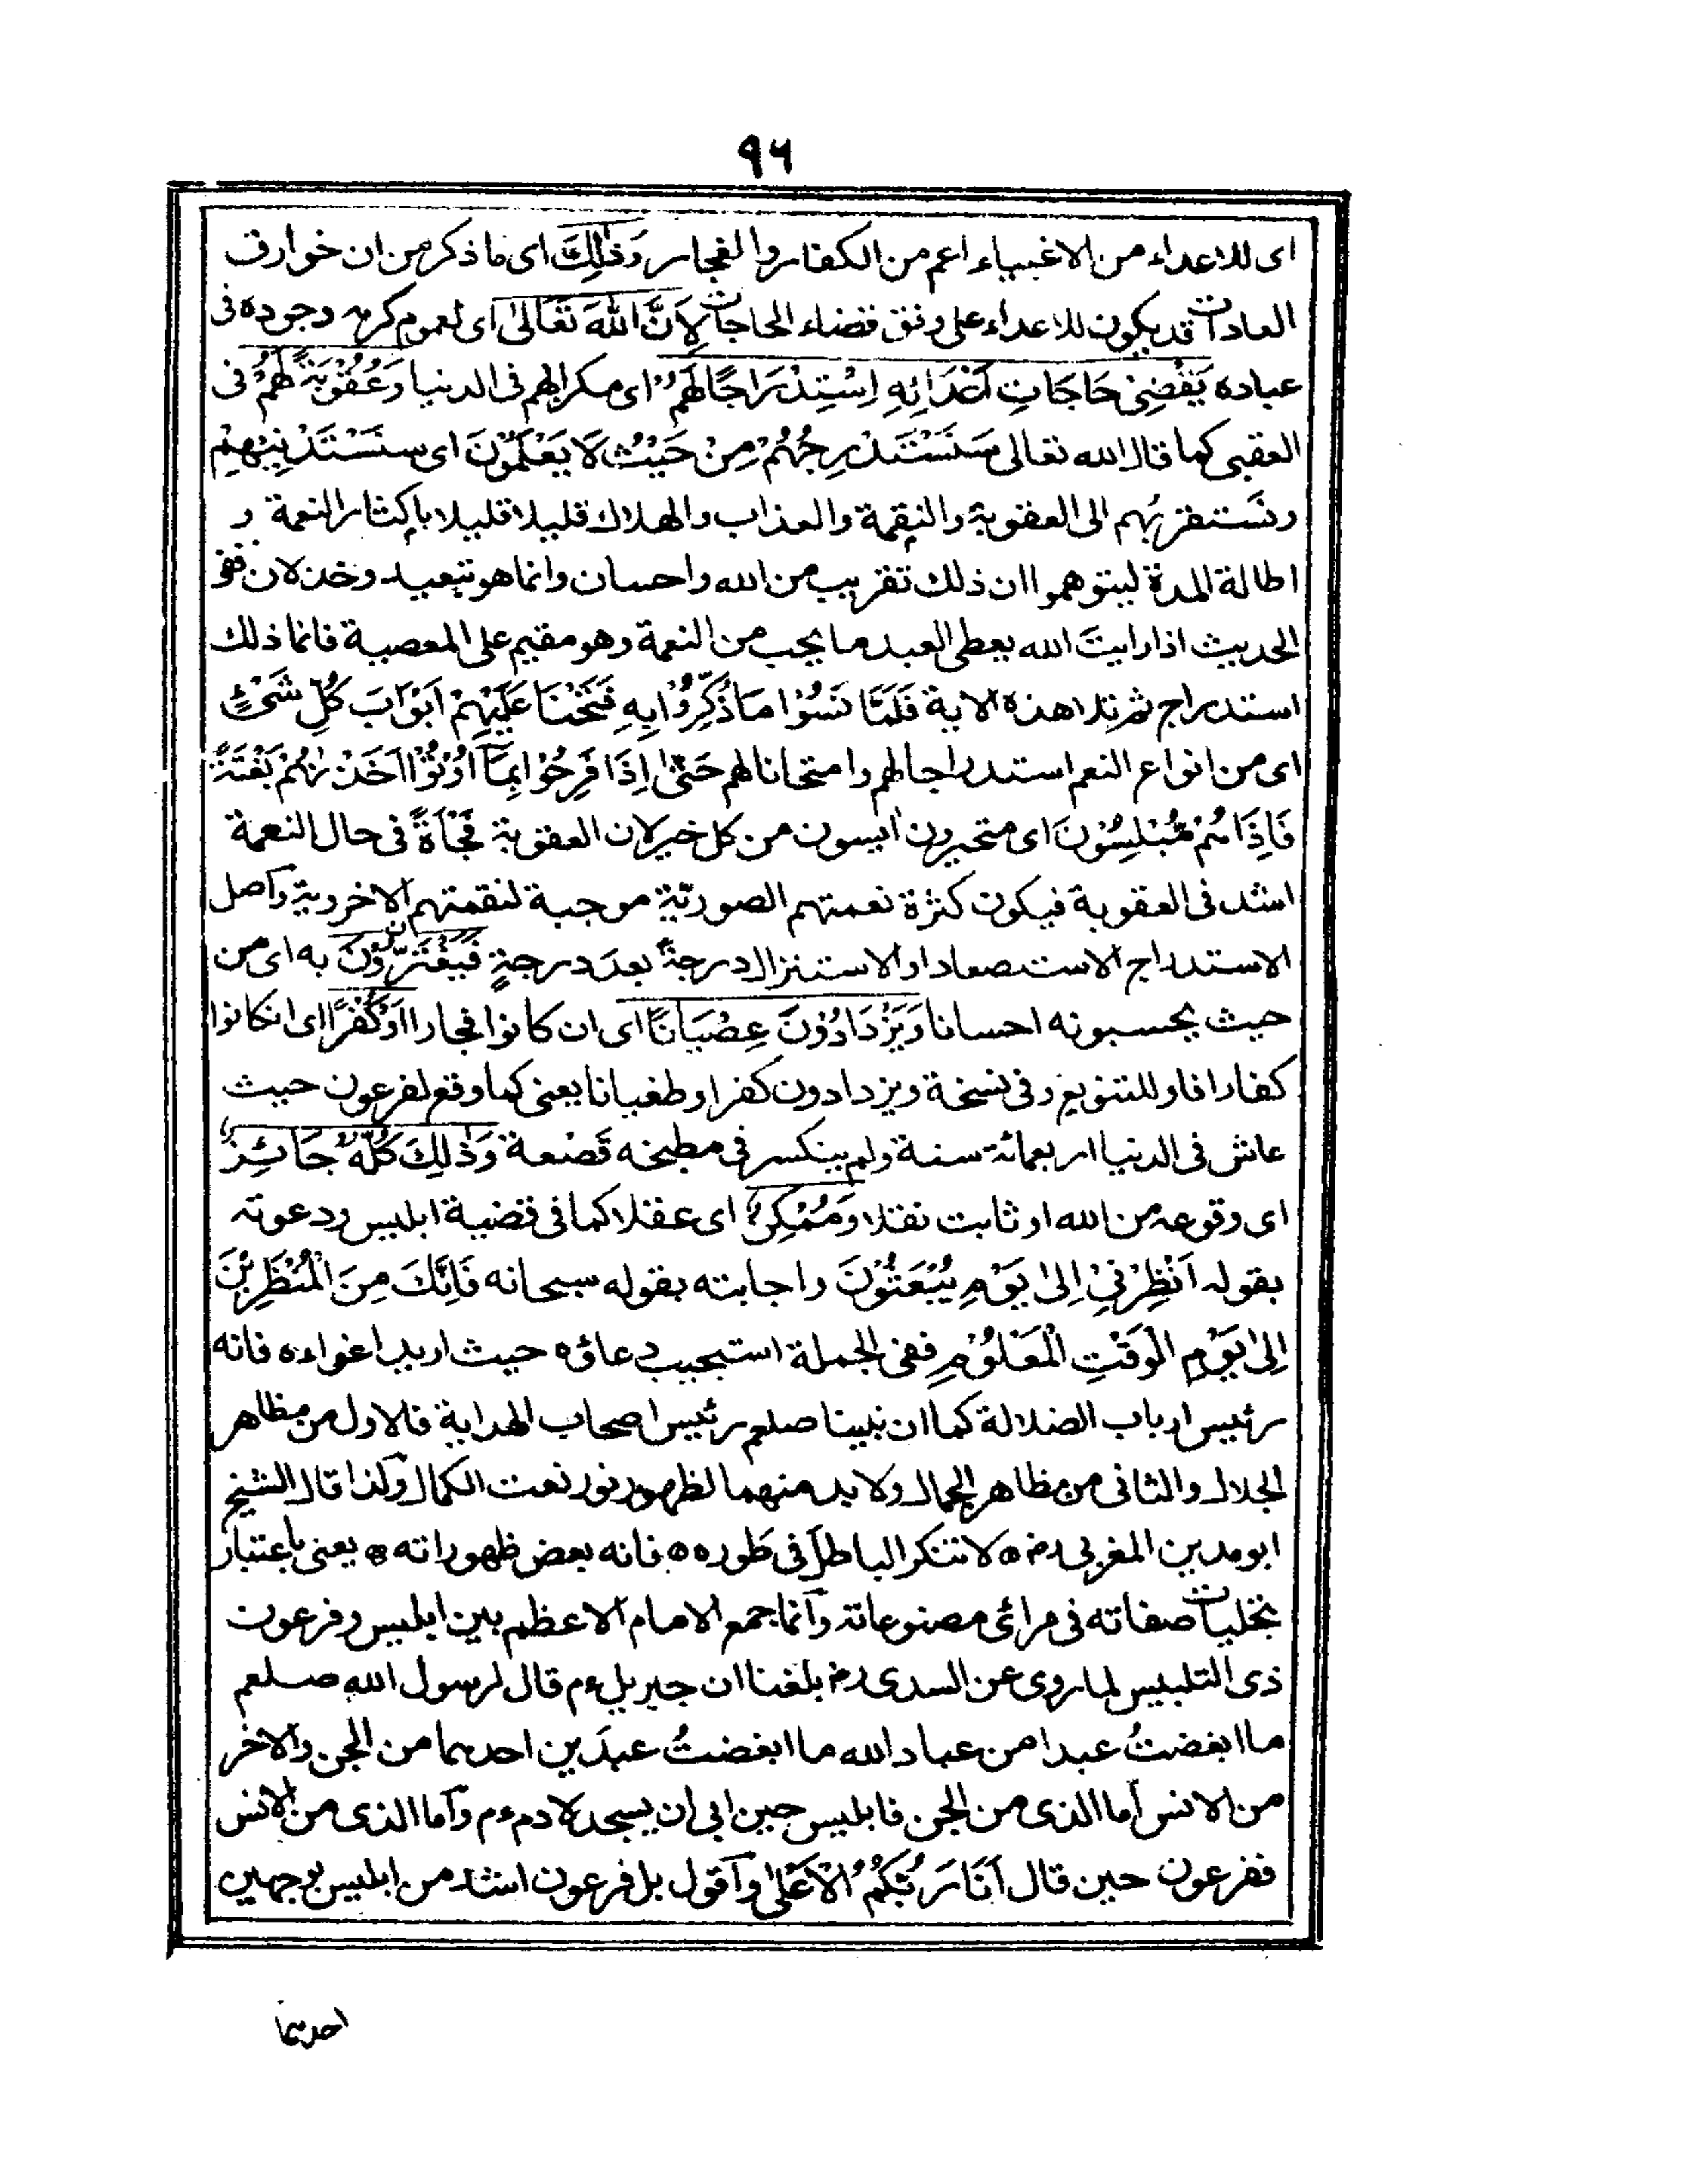 ٩٦
اى للاعداء من الاغبياء اعم من الكفار والفجار وَذٰلِكَ اى ما ذكر من ان خوارق
العادات قد يكون للاعداء على وفق قضاء الحاجات لِاَنَّ اللّٰهَ تَعَالىٰ اى لعموم كرمه وجوده فى
عباده يَقْضِىْ حَاجَاتِ اَعْدَائِهِ اِسْتِدْرَاجًا لَهُمْ اى مكرا لهم فى الدنيا وَعُقُوْبَةً لَهُمْ فى
العقبى كما قال الله تعالى سَنَسْتَدْرِجُهُمْ مِنْ حَيْثُ لَا يَعْلَمُوْنَ اى سنَسْتَدْنِيْهِمْ
ونَستقرِبُهم الى العقوبة والنقمة والعذاب والهلاك قليلا قليلا باِكثار النعمة و
اطالة المدة ليتوهموا ان ذلك تقريب من الله واحسان وانما هو تبعيد وخذلان ففى
الحديث اذا رايتَ الله يعطى العبد ما يحب من النعمة وهو مقيم على المعصية فانما ذلك
استدراج ثم تلا هذه الاية فَلَمَّا نَسُوْا مَا ذُكِّرُوْا بِهِ فَتَحْنَا عَلَيْهِمْ اَبْوَابَ كُلِّ شَىْءٍ
اى من انواع النعم استدراجا لهم وامتحانا لهم حَتّٰى اِذَا فَرِحُوْا بِمَآ اُوْتُوْا اَخَذْنٰهُمْ بَغْتَةً
فَاِذَا هُمْ مُبْلِسُوْنَ اى متحيرون اٰيسون من كل خير لان العقوبة فَجْأَةً فى حال النعمة
اشد فى العقوبة فيكون كثرة نعمتهم الصوريّة موجبة لنقمتهم الاخروية وآصل
الاستدراج الاستصعاد او الاستنزال درجةً بعدَ درجةٍ فَيَغْتَرُّوْنَ به اى من
حيث يحسبونه احسانا وَيَزْدَادُوْنَ عِصْيَانًا اى ان كانوا فجارا اَوْ كُفْرًا اى ان كانوا
كفارا فاو للتنويع وفى نسخة ويزدادون كفرا وطغيانا يعنى كما وقع لفرعون حيث
عاش فى الدنيا اربعمائة سنة ولم ينكسر فى مطبخه قَصْعة وَذٰلِكَ كُلُّهُ جَائِزٌ
اى وقوعه من الله او ثابت نقلا وَمُمْكِنٌ اى عقلا كما فى قضية ابليس ودعوته
بقوله اَنْظِرْنِىْ اِلىٰ يَوْمِ يُبْعَثُوْنَ واجابته بقوله سبحانه فَاِنَّكَ مِنَ الْمُنْظَرِيْنَ
اِلىٰ يَوْمِ الْوَقْتِ الْمَعْلُوْمِ ففى الجملة استجيب دعاؤه حيث اريد اغواءه فانه
رئيس ارباب الضلالة كما ان نبينا صلعم رئيس اصحاب الهداية فالاول من مظاهر
الجلال والثانى من مظاهر الجمال ولا بد منهما لظهور نور نعت الكمال وَلذا قال الشيخ
ابو مدين المغربى رض ۞ لا تنكر الباطلَ فى طوره ۞ فانه بعض ظهوراته ۞ يعنى باعتبار
تجليات صفاته فى مرائى مصنوعاته وآنما جمع الامام الاعظم بين ابليس وفرعون
ذى التلبيس لما روى عن السدى رض بلغنا ان جبريل ءم قال لرسول الله صلعم
ما ابغضتُ عبدا من عباد الله ما ابغضتُ عبدَين احدهما من الجن والاخر
من الانس اَما الذى من الجن فابليس حين ابى ان يسجد لادم ءم وآما الذى من الانس
ففرعون حين قال اَنَا رَبُّكُمُ الْاَعْلىٰ وآقول بل فرعون اشد من ابليس بوجهين
احدهما